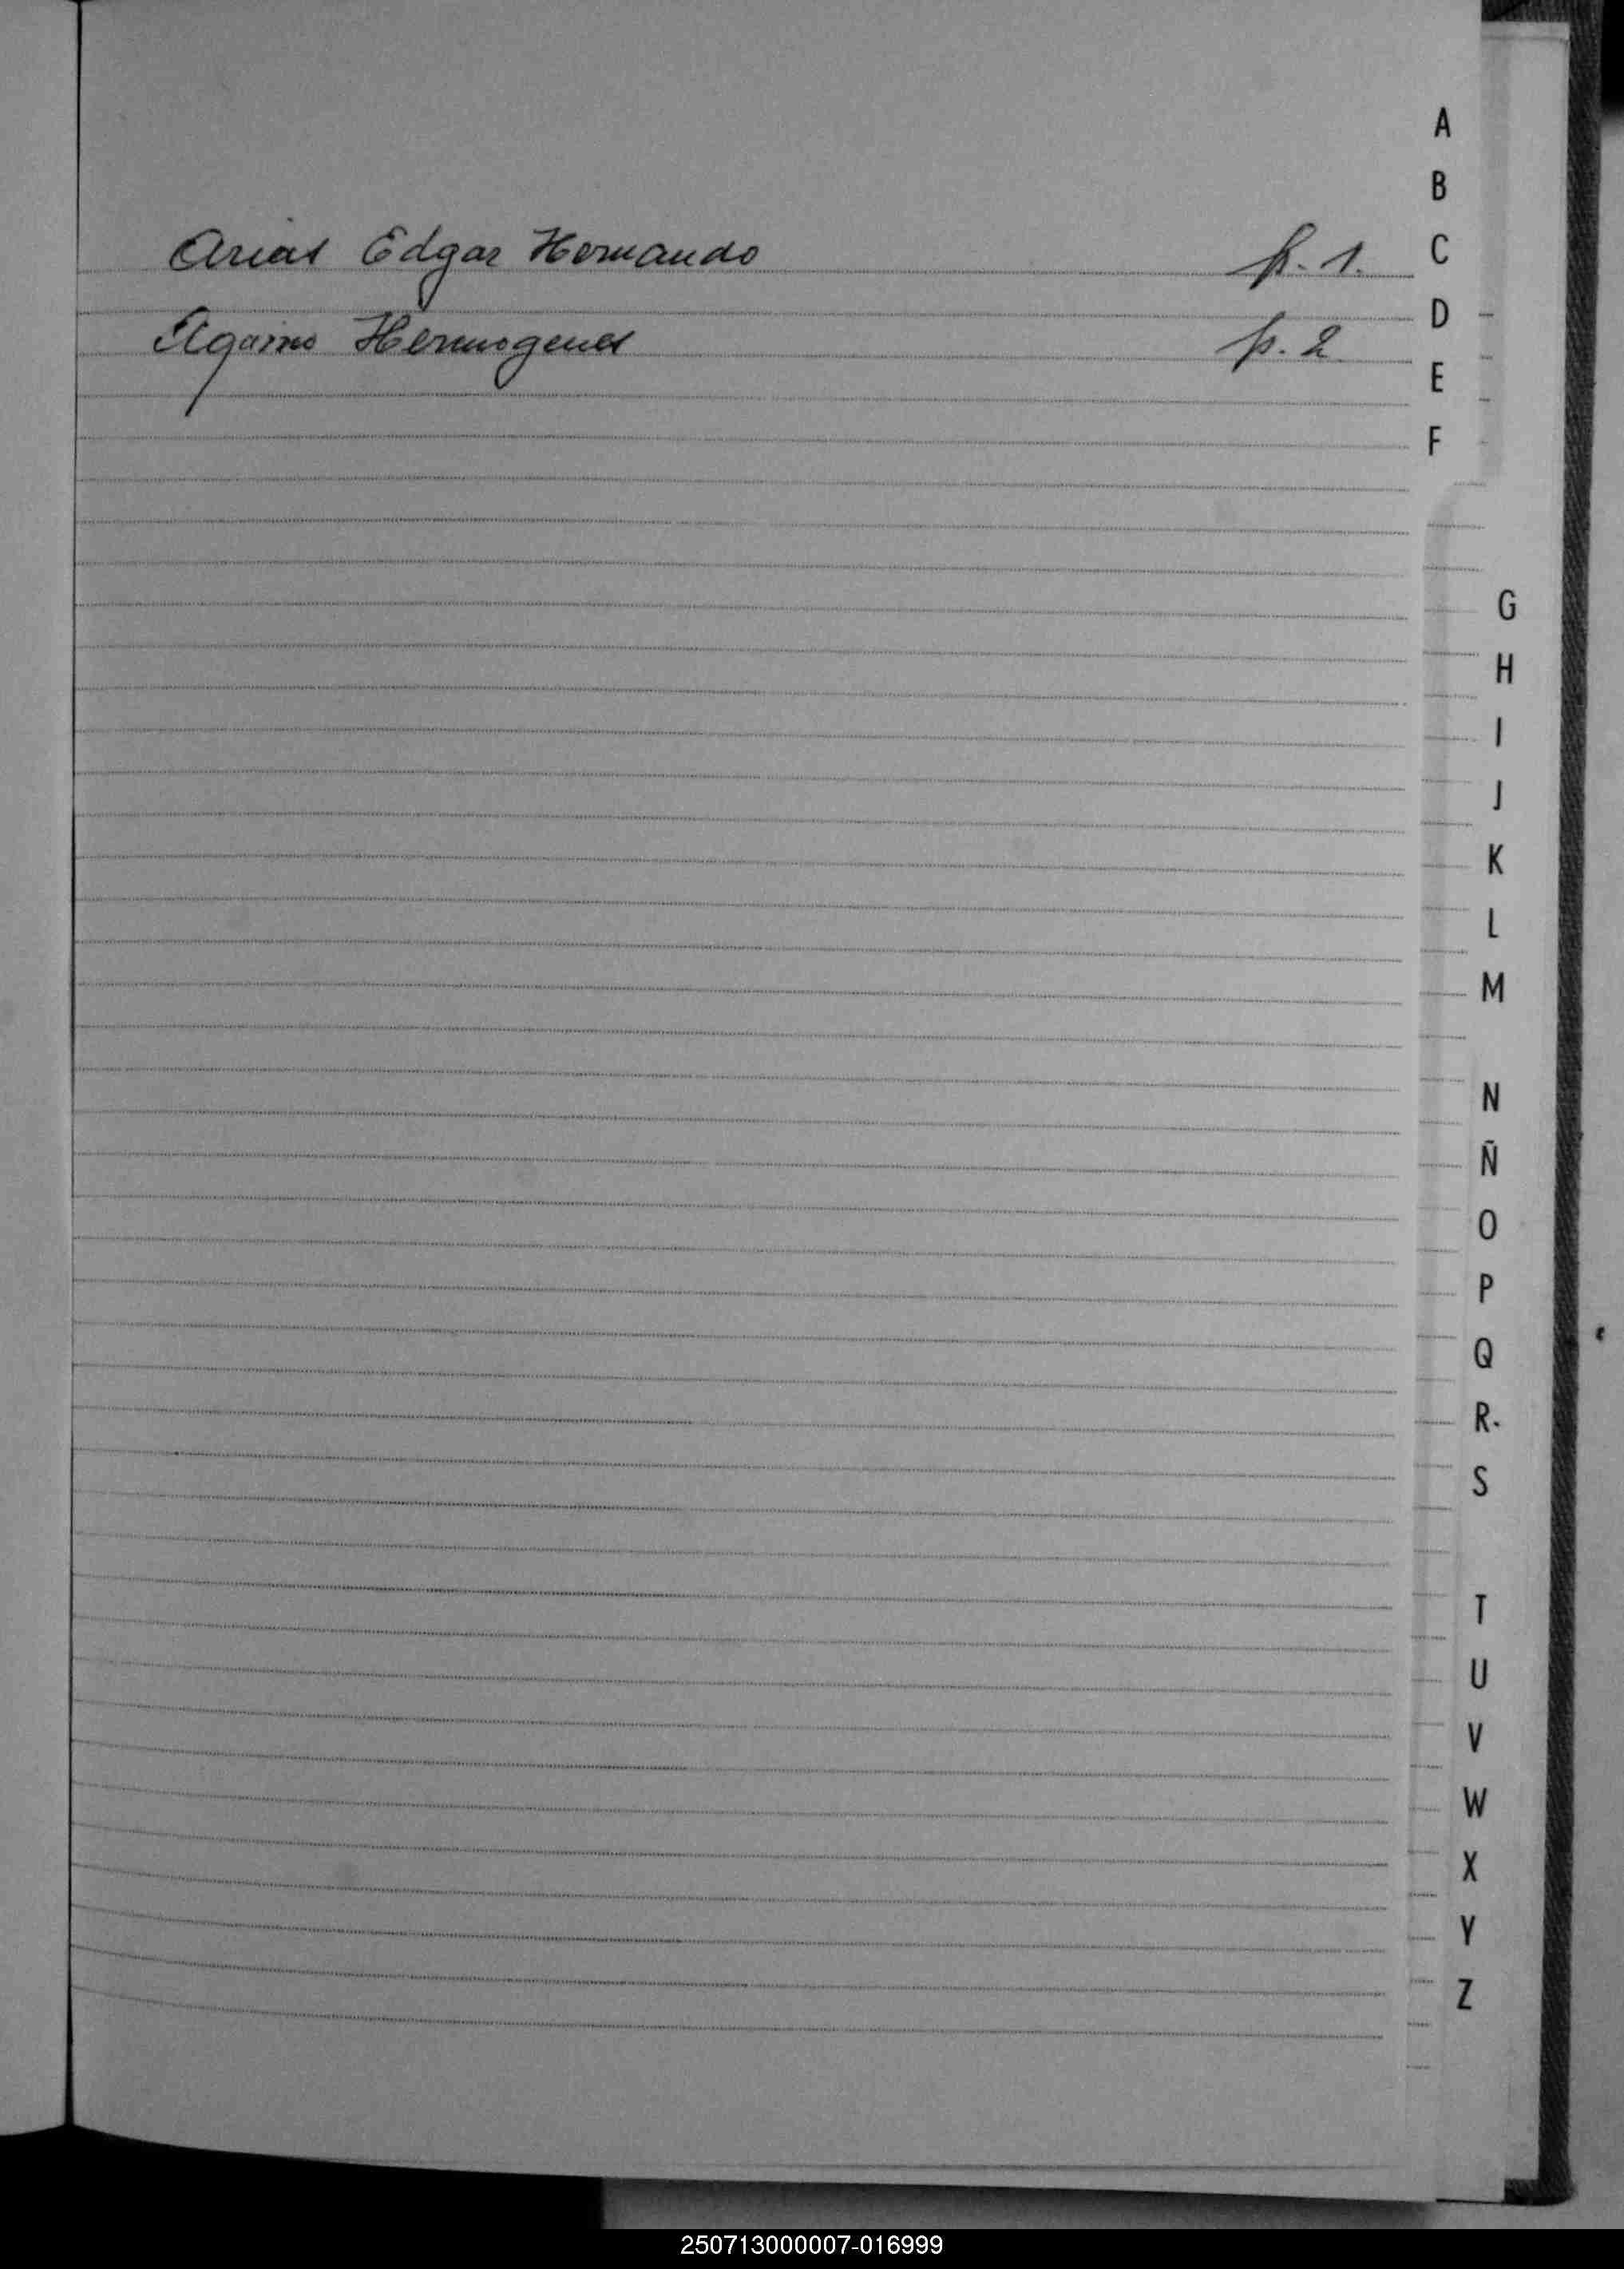 Arias Edgar Hernando p. 1.
Hermogenes p. 2
A
B
C
D
E
F
G
H
I
J
K
L
M
N
Ñ
O
P
Q
R
S
T
U
V
W
X
Y
Z
250713000007-016999